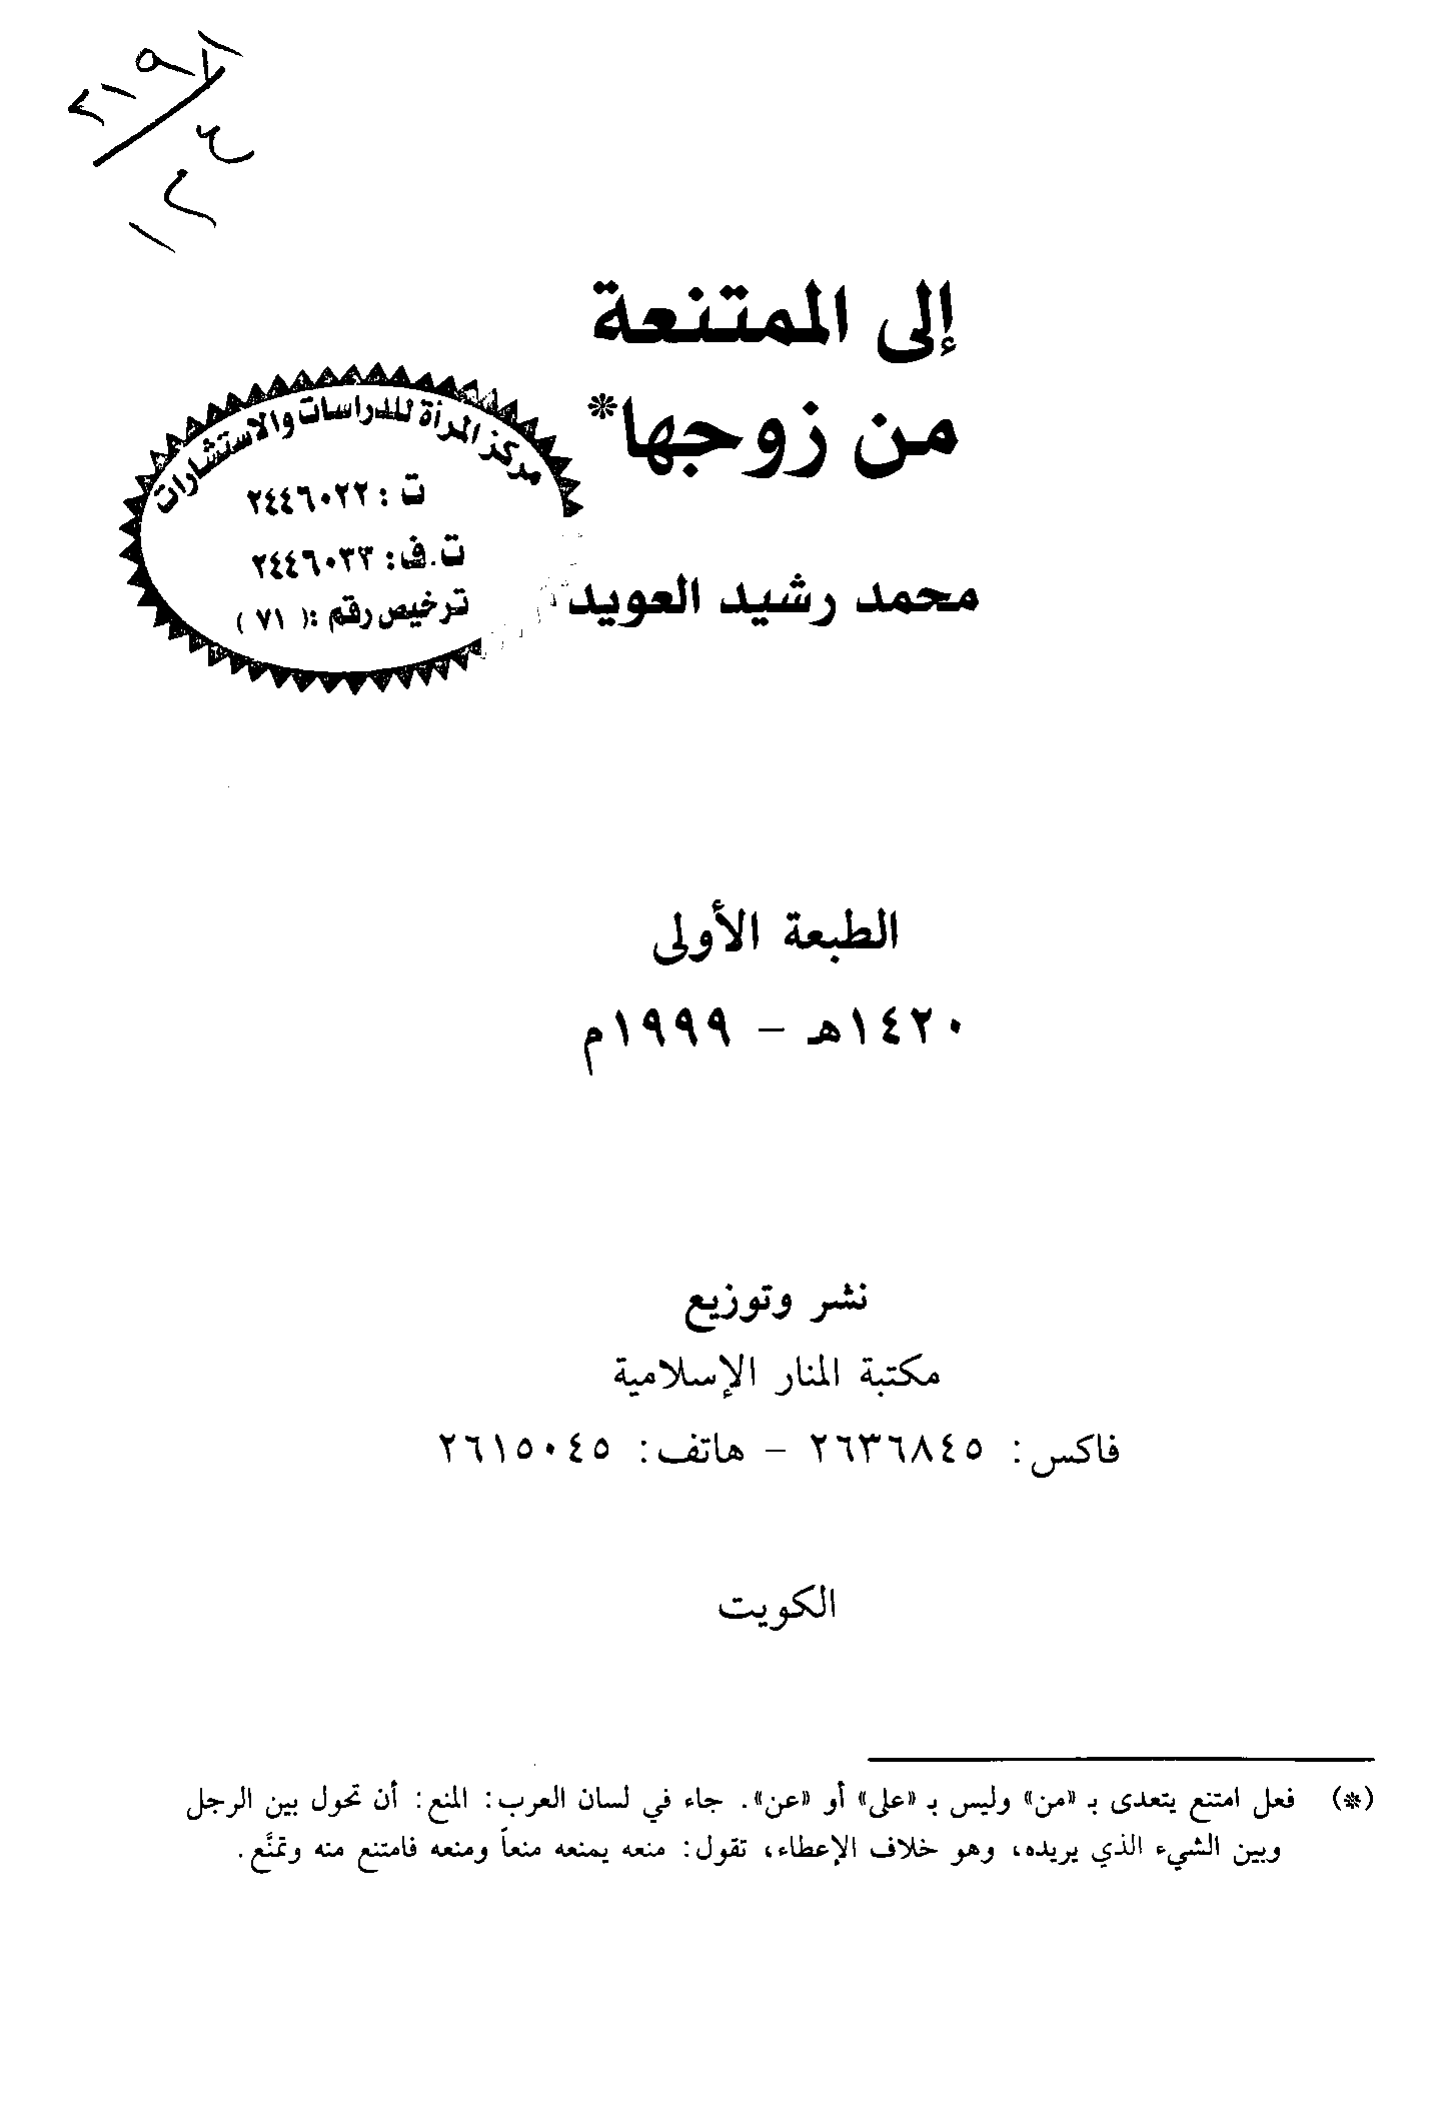 إلى الممتنعة
من زوجها*
مركز المرأة للدراسات والاستشارات
ت : ٢٤٤٦٠٢٢
ت.ف: ٢٤٤٦٠٣٣
ترخيص رقم :( ٧١ )
محمد رشيد العويد
الطبعة الأولى
١٤٢٠هـ - ١٩٩٩م
نشر وتوزيع
مكتبة المنار الإسلامية
فاكس: ٢٦٣٦٨٤٥ - هاتف: ٢٦١٥٠٤٥
الكويت
(*) فعل امتنع يتعدى بـ «من» وليس بـ «على» أو «عن». جاء في لسان العرب: المنع: أن تحول بين الرجل
وبين الشيء الذي يريده، وهو خلاف الإعطاء، تقول: منعه يمنعه منعاً ومنعه فامتنع منه وتمنَّع.